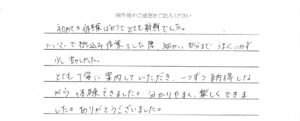 制作後のご感想をご記入ください
初めての体験ばかりでとても新鮮でした。
押込み作業をした際、細かい部分まで うまくいかず
少し
とても丁寧に案内していただき、一つずつ納得しな
がら体験できました。分かりやすく、楽しくできま
した。ありがとうございました。